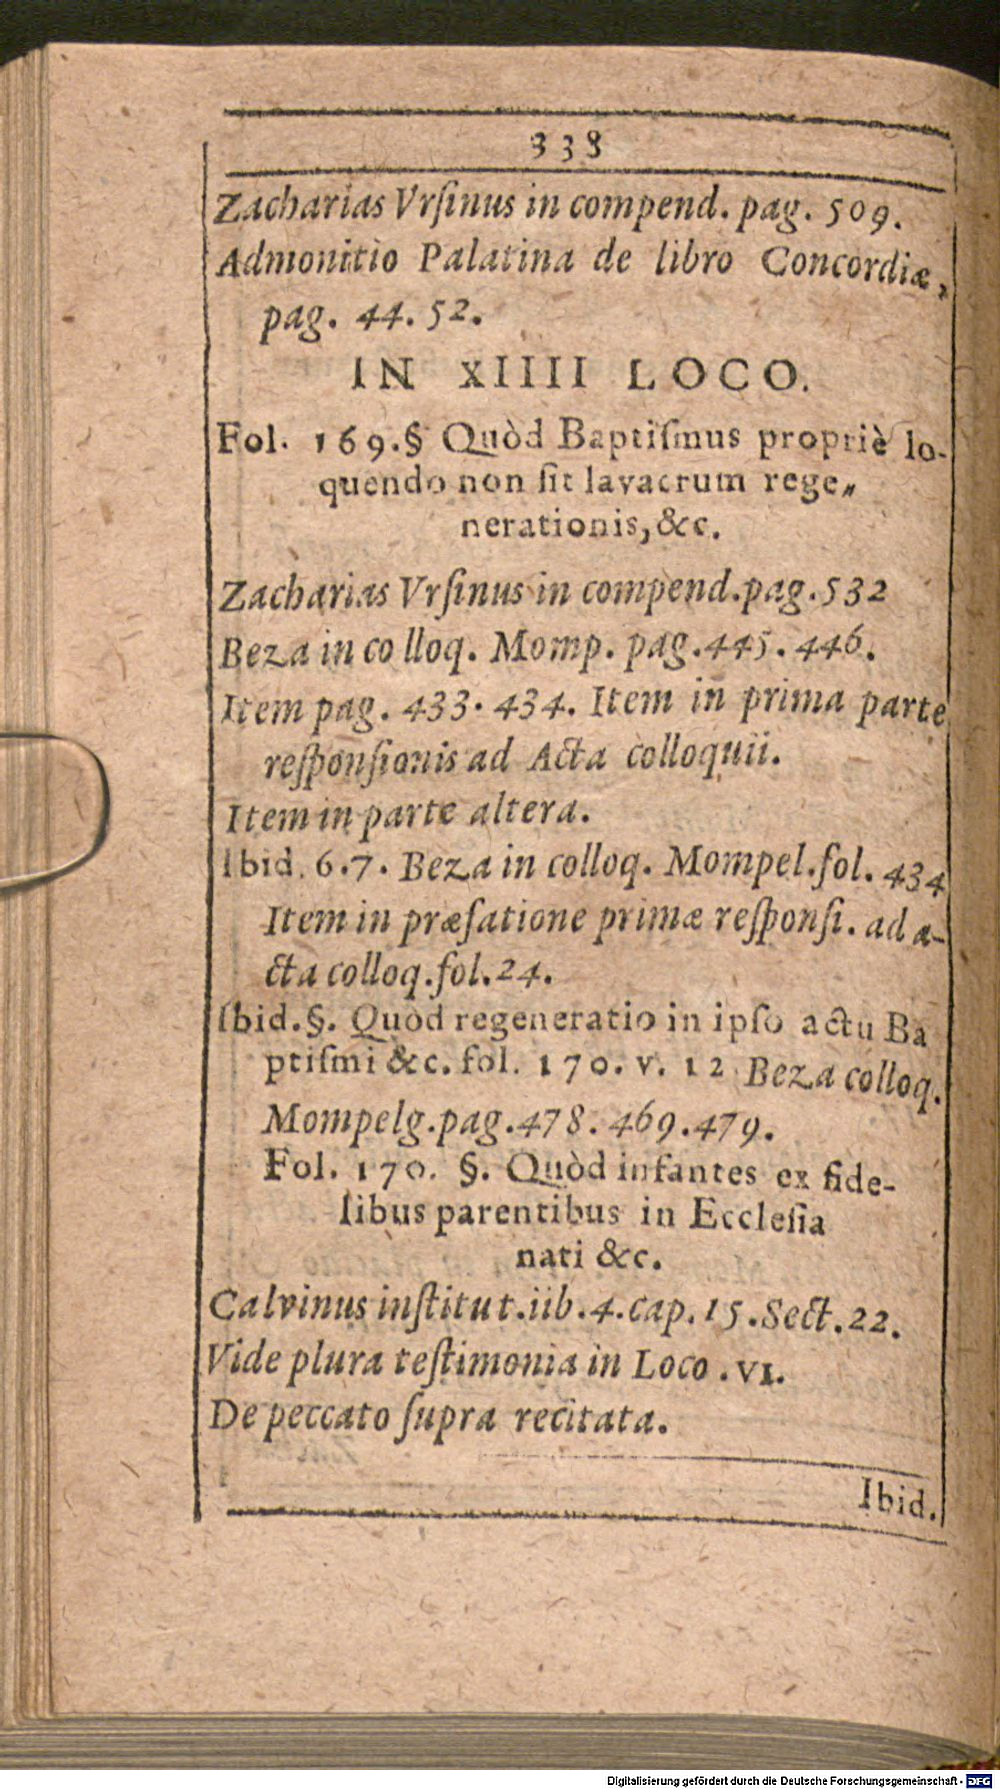 338
Zacharias Vrſinus in compend. pag. 509.
Admonitio Palatina de libro Concordiæ,
pag. 44. 52.
IN XIIII LOCO.
Fol. 169.§ Quòd Baptiſmus propriè lo-
quendo non ſit lavacrum rege„
nerationis, &c.
Zacharias Vrſinus in compend.pag.532
Beza in colloq. Momp. pag.445. 446.
Item pag. 433. 434. Item in prima parte
reſponſionis ad Acta colloquii.
Item in parte altera.
Ibid. 6.7. Beza in colloq. Mompel.fol. 434
Item in præfatione primæ reſponſi. ad a-
cta colloq.fol.24.
Ibid.§. Quòd regeneratio in ipſo actu Ba
ptiſmi &c. fol. 170. v. 12 Beza colloq.
Mompelg.pag.478. 469.479.
Fol. 170. §. Quòd infantes ex fide-
libus parentibus in Eccleſia
nati &c.
Calvinus inſtitut.iib.4.cap.15.Sect.22.
Vide plura teſtimonia in Loco .VI.
De peccato ſupra recitata.
Ibid.
Digitalisierung gefördert durch die Deutsche Forschungsgemeinschaft - DFG